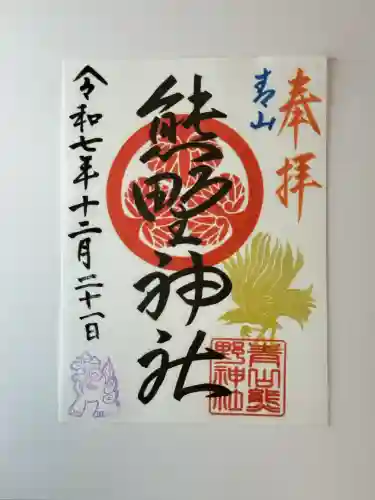 奉拝
青山
熊野神社
令和七年十二月二十一日
青山熊
野神社